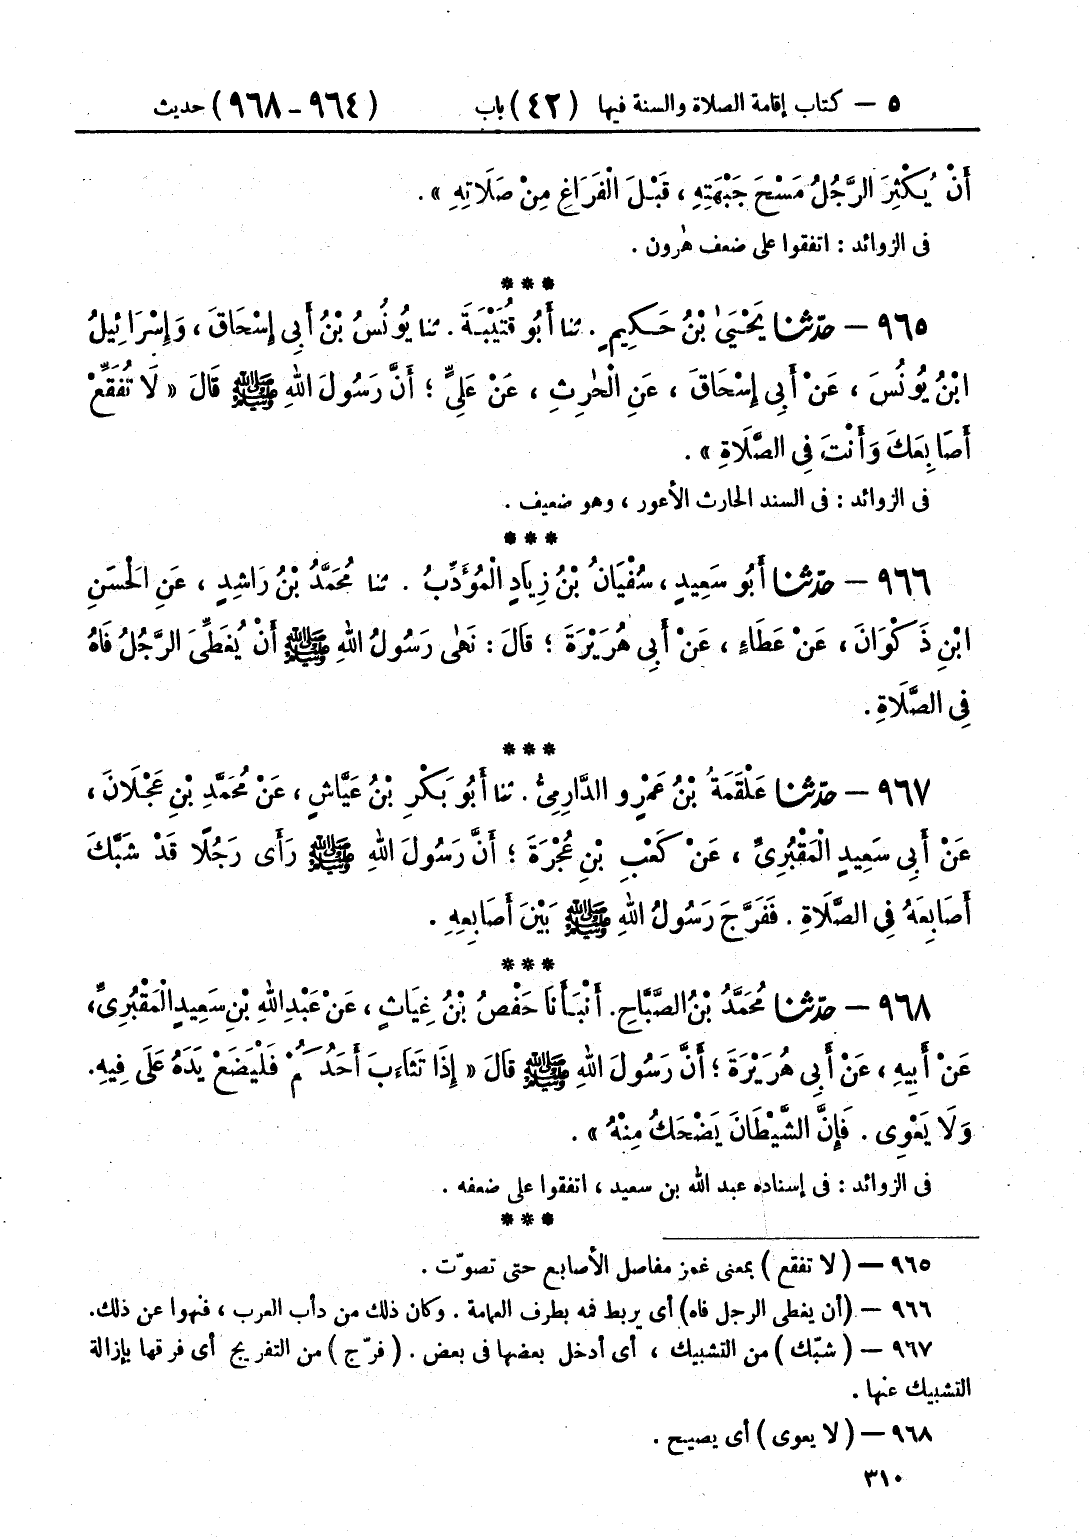 ٥ – كتاب إقامة الصلاة والسنة فيها (٤٢) باب (٩٦٤ – ٩٦٨) حديث
أَنْ يُكْثِرَ الرَّجُلُ مَسْحَ جَبْهَتِهِ ، قَبْلَ الْفَرَاغِ مِنْ صَلَاتِهِ » .
فى الزوائد : اتفقوا على ضعف هٰرون .
***
٩٦٥ – حدّثنا يَحْيَىٰ بْنُ حَكِيمٍ . ثنا أَبُو قُتَيْبَةَ . ثنا يُونُسُ بْنُ أَبِى إِسْحَاقَ ، وَإِسْرَائِيلُ
ابْنُ يُونُسَ ، عَنْ أَبِى إِسْحَاقَ ، عَنِ الْحٰرِثِ ، عَنْ عَلِيٍّ ؛ أَنَّ رَسُولَ اللهِ ﷺ قَالَ « لَا تُفَقِّعْ
أَصَابِعَكَ وَأَنْتَ فِى الصَّلَاةِ » .
فى الزوائد : فى السند الحارث الأعور ، وهو ضعيف .
***
٩٦٦ – حدّثنا أَبُو سَعِيدٍ ، سُفْيَانُ بْنُ زِيَادٍ الْمُؤَدِّبُ . ثنا مُحَمَّدُ بْنُ رَاشِدٍ ، عَنِ الْحَسَنِ
ابْنِ ذَكْوَانَ ، عَنْ عَطَاءٍ ، عَنْ أَبِى هُرَيْرَةَ ؛ قَالَ : نَهٰى رَسُولُ اللهِ ﷺ أَنْ يُغَطِّىَ الرَّجُلُ فَاهُ
فِى الصَّلَاةِ .
***
٩٦٧ – حدّثنا عَلْقَمَةُ بْنُ عَمْرٍو الدَّارِمِىُّ . ثنا أَبُو بَكْرِ بْنُ عَيَّاشٍ ، عَنْ مُحَمَّدِ بْنِ عَجْلَانَ ،
عَنْ أَبِى سَعِيدٍ الْمَقْبُرِىِّ ، عَنْ كَعْبِ بْنِ عُجْرَةَ ؛ أَنَّ رَسُولَ اللهِ ﷺ رَأَى رَجُلًا قَدْ شَبَّكَ
أَصَابِعَهُ فِى الصَّلَاةِ . فَفَرَّجَ رَسُولُ اللهِ ﷺ بَيْنَ أَصَابِعِهِ .
***
٩٦٨ – حدّثنا مُحَمَّدُ بْنُ الصَّبَّاحِ . أَنْبَأَنَا حَفْصُ بْنُ غِيَاثٍ ، عَنْ عَبْدِ اللهِ بْنِ سَعِيدٍ الْمَقْبُرِىِّ ،
عَنْ أَبِيهِ ، عَنْ أَبِى هُرَيْرَةَ ؛ أَنَّ رَسُولَ اللهِ ﷺ قَالَ « إِذَا تَثَاءَبَ أَحَدُكُمْ فَلْيَضَعْ يَدَهُ عَلَى فِيهِ .
وَلَا يَعْوِى . فَإِنَّ الشَّيْطَانَ يَضْحَكُ مِنْهُ » .
فى الزوائد : فى إسناده عبد الله بن سعيد ، اتفقوا على ضعفه .
***
٩٦٥ – ( لا تفقع ) بمعنى غمز مفاصل الأصابع حتى تصوّت .
٩٦٦ – (أن يغطى الرجل فاه) أى يربط فمه بطرف العمامة . وكان ذلك من دأب العرب ، فنهوا عن ذلك.
٩٦٧ – ( شبّك ) من التشبيك ، أى أدخل بعضها فى بعض . ( فرّج ) من التفريج أى فرقها بإزالة
التشبيك عنها .
٩٦٨ – ( لا يعوى ) أى يصيح .
٣١٠